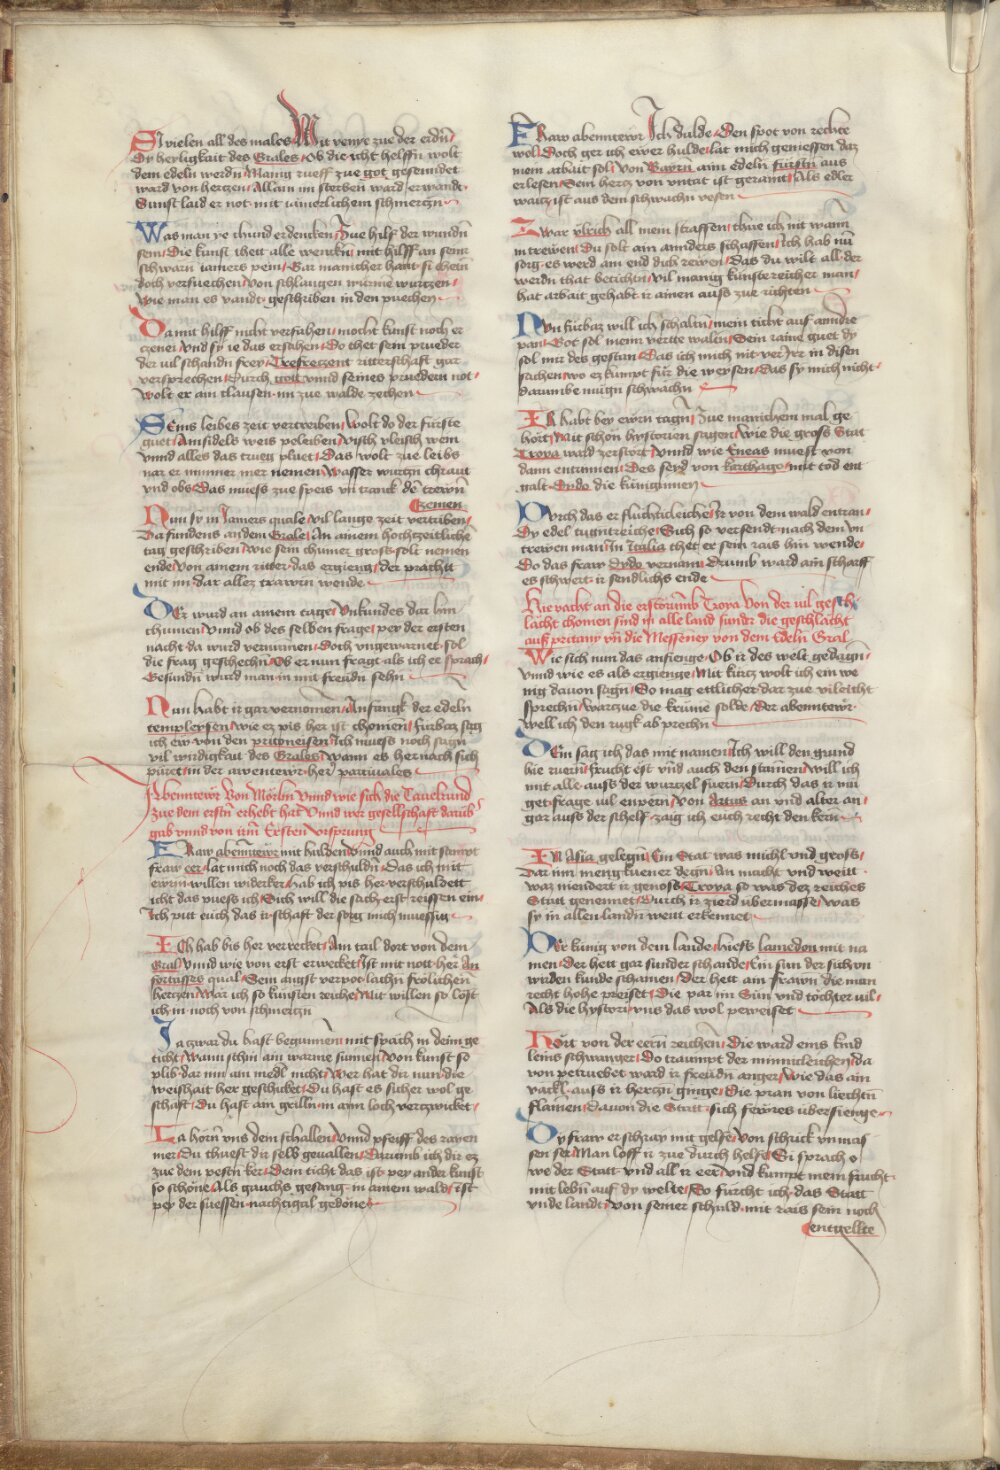 SI vielen all des males Mit venye zue der erdn
Dy herligkait des Grales Ob die icht helffn wolt
dem edeln werdn Manig rueff zue got gesenndet
ward von hertzen Allain im sterben ward erwandt
Sunst laid er not mit iamerlichem schmertzn
Was man ye chund erdencken Zue hilf der wundn
sein Die kunst thett alle wencken mit hilff an seinr
schwarn iamers pein Gar manicher hant si chein
doch versuechen Von schlangen würme wurtzen
wie man es vandt geschriben in den puechen
Da mit hilff nicht verfahen mocht kunst noch er
czenei Vnd sy ie das ersahen Do thet sein prueder
der vil schandn frey Trefreczent ritterschaft gar
versprechen Durch gott vnnd seines pruedern not
wolt er ain clausen im zue walde zechen
Seins leibes zeit vertreiben Wolt do der fürste
guet Ainsidels weis peleiben Visch vleisch wein
vnnd alles das trueg pluet Das wolt zue leibs
nar er nimmer mer nemen Wasser wurtzn chraut
vnd obs Das mues zue speis vn tranck de trewn
Czemen
Nun sy in Iamers quale Vil lange zeit vertriben
Da fundens an dem Grale An ainem hochzeitliche
tag geschriben Wie sein chumer gross solt nemen
ende Von ainem ritter das ergieng der pracht
mit im dar allez trawrn wende
Der wurd an ainem tage Vnkundes dar hin
chumen Vnnd ob des selben frage per der ersten
nacht da wurd vernumen Doch vngewarnet sol
die frag geschechn Ob er nun fragt als ich er sprach
Gesundn wurd man in mit freudn sehn
Nun habt ir gar vernomen Anfangk der edeln
templeysen wie ez pis her ist chomen fürbaz sag
ich ew von den pritoneisen Ich muess noch sagn
vil wirdigkait des Grales wann es hernach sich
püret in der awentewr her partzivales
Abenntewr Von Mörlin Vnnd wie sich die Tauelrund
zue dem erstn erhebt hat Vnnd wer gesellschaft darüb
gab vnnd von irm Ersten Vrsprung
Fraw abenntewr mit hulden Vnnd auch mit stampt
fraw eer lat mich noch das verschuldn Das ich mit
ewrm willen widerker hab ich pis her verschuldett
icht das pueß ich Sich will die sach erst reissen ein
Ich pitt euch das irschaft der sorg mich muessig
Ich hab bis her verrecket Ain tail dort von dem
Gral Vnnd wie von erst erwecket Ist mit nott her An
fortasses qual Sein angst verpot lachn frölichen
hertzen War ich so künsten reiche Mit willen so löst
ich in noch von schmertzn
Ja zwar du hast begunnen mit spæch in deim ge
ticht Wann schin ain warme sunnen Von kunst so
plib dar inn ain medl nicht Wer hat dir nun die
weishait her geschicket Du hast es sicher wol ge
schaft Du hast ain grilln in ainn loch verczwicket
La hörn vns dein schallen Vnnd pfeiff des rayen
mer Du thuest dir selb geuallen Darumb ich dir ez
zue dem pestn ker Dein ticht das ist pey ander kunst
so schöne Als gauchs gesang in ainem wald ist
pey der suessen nachtigal gedöne
Fraw abenntewr Ich dulde Den spot von rechte
wol Doch ger ich ewer hulde lat mich geniessen daz
mein arbait sol Von Bayrn aim edeln fürstn aus
erlesen Sein hertz von vntat ist geraint Als edler
waitz ist aus dem schwachn vesen
Zwar vlrich all mein straffen thue ich nit wann
in trewen Du solt ain annders schaffen Ich hab nu
sorg es werd am end dich rewen Das du wilt all der
werdn that betichtn Vil manig künstereicher man
hat arbait gehabt ir ainen auss zue richten
Nvn fürbaz will ich schaltn mein ticht auf anndre
pan Got sol meinr vertte waltn Sein raine guet dy
sol mir des gestan Das ich mich nit verirr in disen
sachen wo ez kumpt für die weysen Das sy mich nicht
darumbe muign schwachn
Ir habt bey ewrn tagn Zue manichem mal ge
hört Mit schön hystorien sagen Wie die gross Stat
Troya ward zerstört Vnnd wie Eneas muest von
dann entrinnen Des seyd von karthago mit tod ent
galt Dydo die küniginnen
Dvrch das er fluchticleiche Ir von dem wald entran
Dy edel tugntreiche Sich so versendt nach dem vn
trewen man In Italia thet er sein rais hin wende
Do das fraw Dydo vernam Drumb ward ain scharff
es schwert ir sendlichs ende
Hie vacht an die erstörumb Troya Von der vil geschl
lächt chomen sind in alle land sundr die geschlächt
auss pritany vn die Messeney von dem Edeln Gral
Wie sich nun das anfienge Ob ir des welt gedagn
vnnd wie es als ergienge Mit kurtz wolt ich ein we
nig dauon sagn So mag ettlicher dar zue vileicht
sprechn warzue die krüme solde Der abenntewr
well ich den rugk ab prechn
Dem sag ich das mit namen Ich will den grund
hie ruern frucht est vnd auch den stamen will ich
mit alle auss der wurtzel fuern Durch das ir mit
get frage wil enpern Von Artus an vnd alter an
gar auss der schelf zaig ich euch recht den kern
In Asia gelegn Ein Stat was michl vnd gross
Dar inn meng küener degn An macht vnd weitt
waz niendert ir genoss Troya so was dez reiches
Statt genennet Durch ir zierd übermasse was
sy in allen landn weitt erkennet
Der künig von dem lande hiess lamedon mit na
men Der hett gar sunder schande Ein sun der sich vn
wirden kunde schamen der hett ain frawn die man
recht hohe preiset Die par im Sün vnd töchter vil
Als die hystori vns das wol peweiset
Hört von der eern reichen Die ward eins kind
leins schwanger Do traumpt der minnicleichen da
von petruebet ward ir freudn anger Wie das ain
vackl auss ir hertzn ginge Die pran von liechtn
flamen Dauon die Statt sich fewres übersienge
Dy fraw erschray mit gelfe Von schrick vnmas
sen ser Man loff ir zue durch helfe Si sprach o
we der Statt vnd all ir eer vnd kumpt mein frucht
mit lebn auf dy welte So fürcht ich das Statt
vnde landt von seiner schuld mit rais sein noch
entgellte